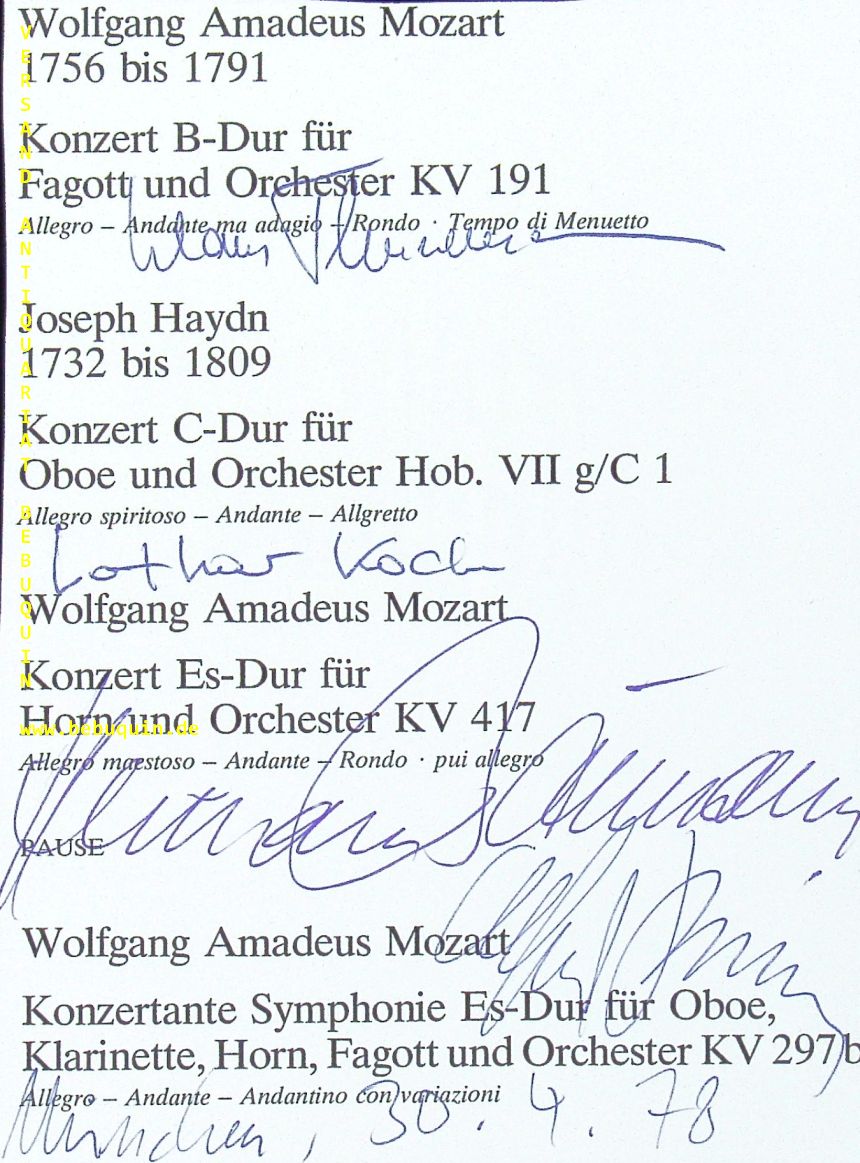 Wolfgang Amadeus Mozart
1756 bis 1791
Konzert B-Dur für
Fagott und Orchester KV 191
Allegro – Andante ma adagio – Rondo · Tempo di Menuetto
Klaus
Joseph Haydn
1732 bis 1809
Konzert C-Dur für
Oboe und Orchester Hob. VII g/C 1
Allegro spiritoso – Andante – Allgretto
Lothar Koch
Wolfgang Amadeus Mozart
Konzert Es-Dur für
Horn und Orchester KV 417
Allegro maestoso – Andante – Rondo · pui allegro
PAUSE
Wolfgang Amadeus Mozart
Konzertante Symphonie Es-Dur für Oboe,
Klarinette, Horn, Fagott und Orchester KV 297 b
Allegro – Andante – Andantino con variazioni
München, 30. 4. 78
VERSAND ANTIQUARIAT BEBUQUIN
www.bebuquin.de